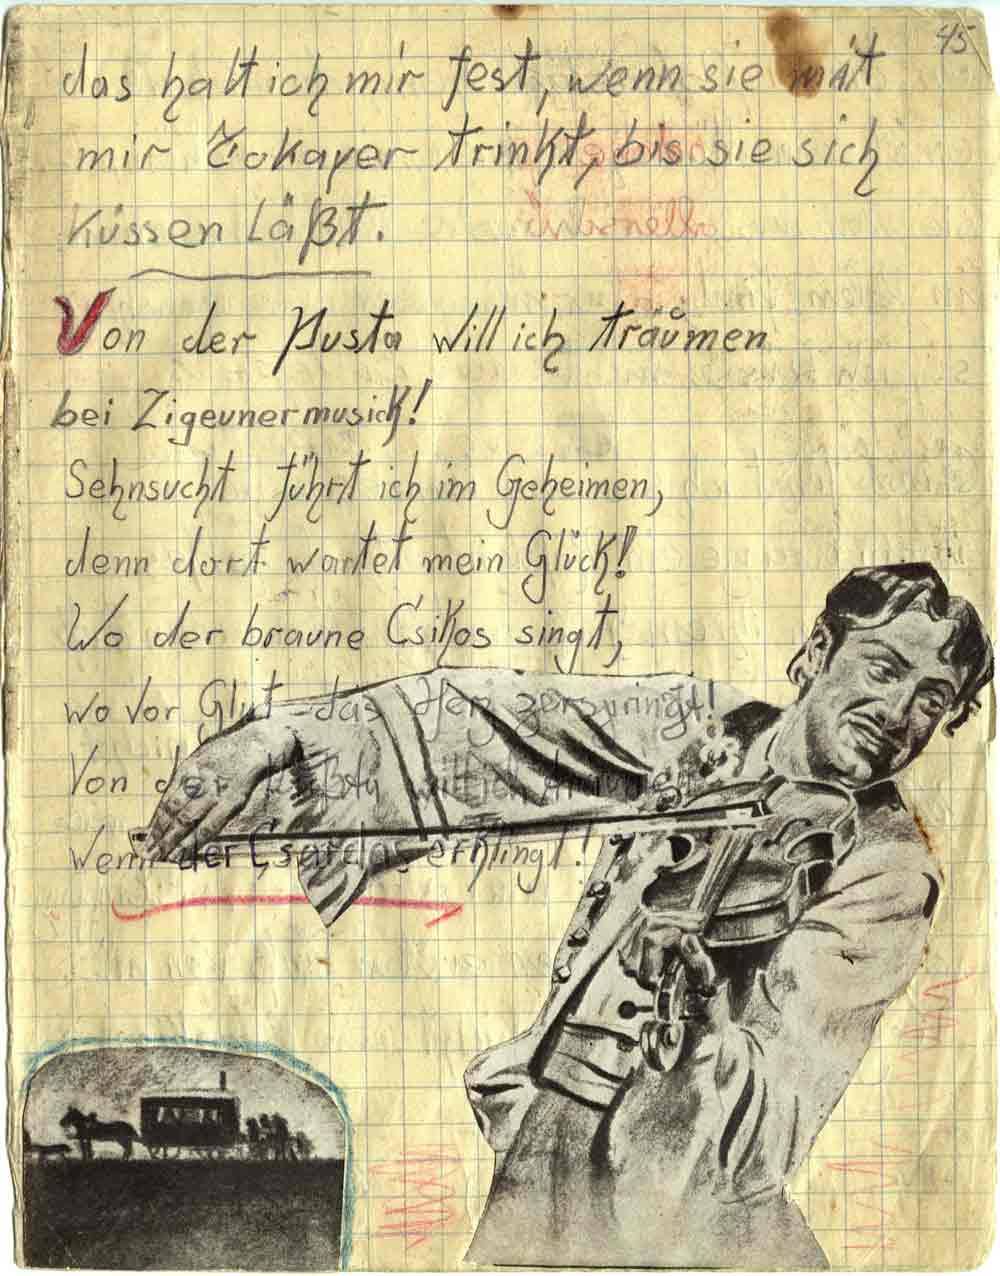 45
das halt ich mir fest, wenn sie mit
mir Tokayer trinkt, bis sie sich
küssen läßt.
Von der Pusta will ich träumen
bei Zigeunermusick!
Sehnsucht führt ich im Geheimen,
denn dort wartet mein Glück!
Wo der braune Csikos singt,
wo vor Glut das Herz zerspringt!
Von der will ich
Wenn der Csardas erklingt!